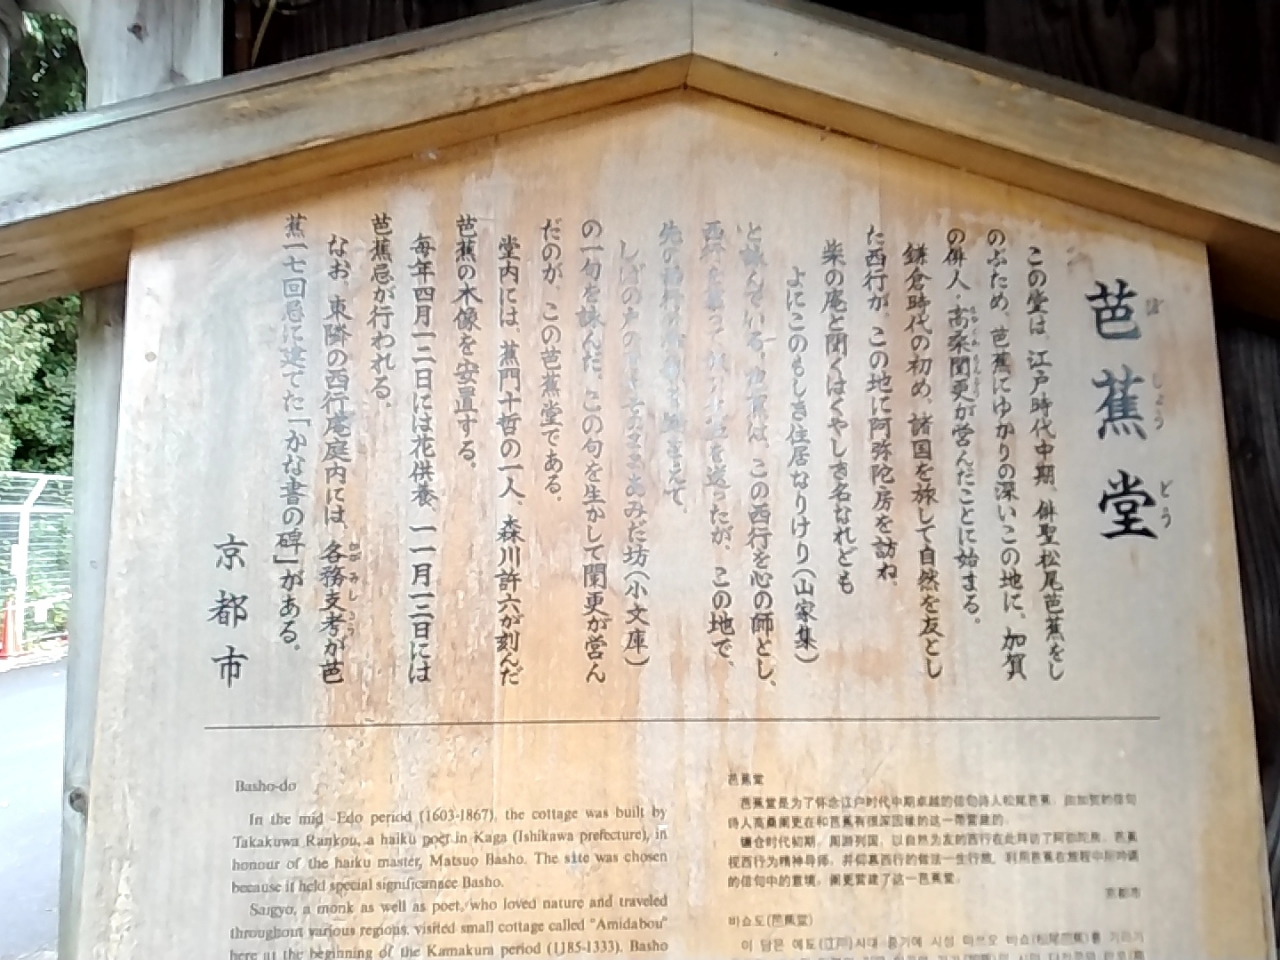 芭蕉堂
ばしょうどう
この堂は、江戸時代中期、俳聖松尾芭蕉をし
のぶため、芭蕉にゆかりの深いこの地に、加賀
の俳人・高桑闌更が営んだことに始まる。
鎌倉時代の初め、諸国を旅して自然を友とし
た西行が、この地に阿弥陀房を訪ね、
柴の庵と聞くはくやしき名なれども
よにこのもしき住居なりけり(山家集)
と詠んでいる。芭蕉は、この西行を心の師とし、
西行を慕って旅の人生を送ったが、この地で、
先の西行の
しばの戸の月やそのままあみだ坊(小文庫)
の一句を詠んだ。この句を生かして闌更が営ん
だのが、この芭蕉堂である。
堂内には、蕉門十哲の一人、森川許六が刻んだ
芭蕉の木像を安置する。
毎年四月一二日には花供養、一一月一二日には
芭蕉忌が行われる。
なお、東隣の西行庵庭内には、各務支考が芭
蕉一七回忌に建てた「かな書の碑」がある。
京都市
Basho-do
In the mid -Edo period (1603-1867), the cottage was built by
Takakuwa Rankou, a haiku poet in Kaga (Ishikawa prefecture), in
honour of the haiku master, Matsuo Basho. The site was chosen
because it held special significance Basho.
Saigyo, a monk as well as poet, who loved nature and traveled
throughout various regions, visited small cottage called "Amidabou"
here at the beginning of the Kamakura period (1185-1333). Basho
芭蕉堂
芭蕉堂是为了怀念江户时代中期卓越的俳句诗人松尾芭蕉，由加贺的俳句
诗人高桑阑更在和芭蕉有很深因缘的这一带营建的。
镰仓时代初期，周游列国，以自然为友的西行在此拜访了阿弥陀房。芭蕉
视西行为精神导师，并仰慕西行的做法一生行旅。利用芭蕉在旅程中所吟诵
的俳句中的意境，阑更营建了这一芭蕉堂。
京都市
바쇼도(芭蕉堂)
이 당은 에도(江戸)시대 중기에 시성 마쓰오 바쇼(松尾芭蕉)를 기리기